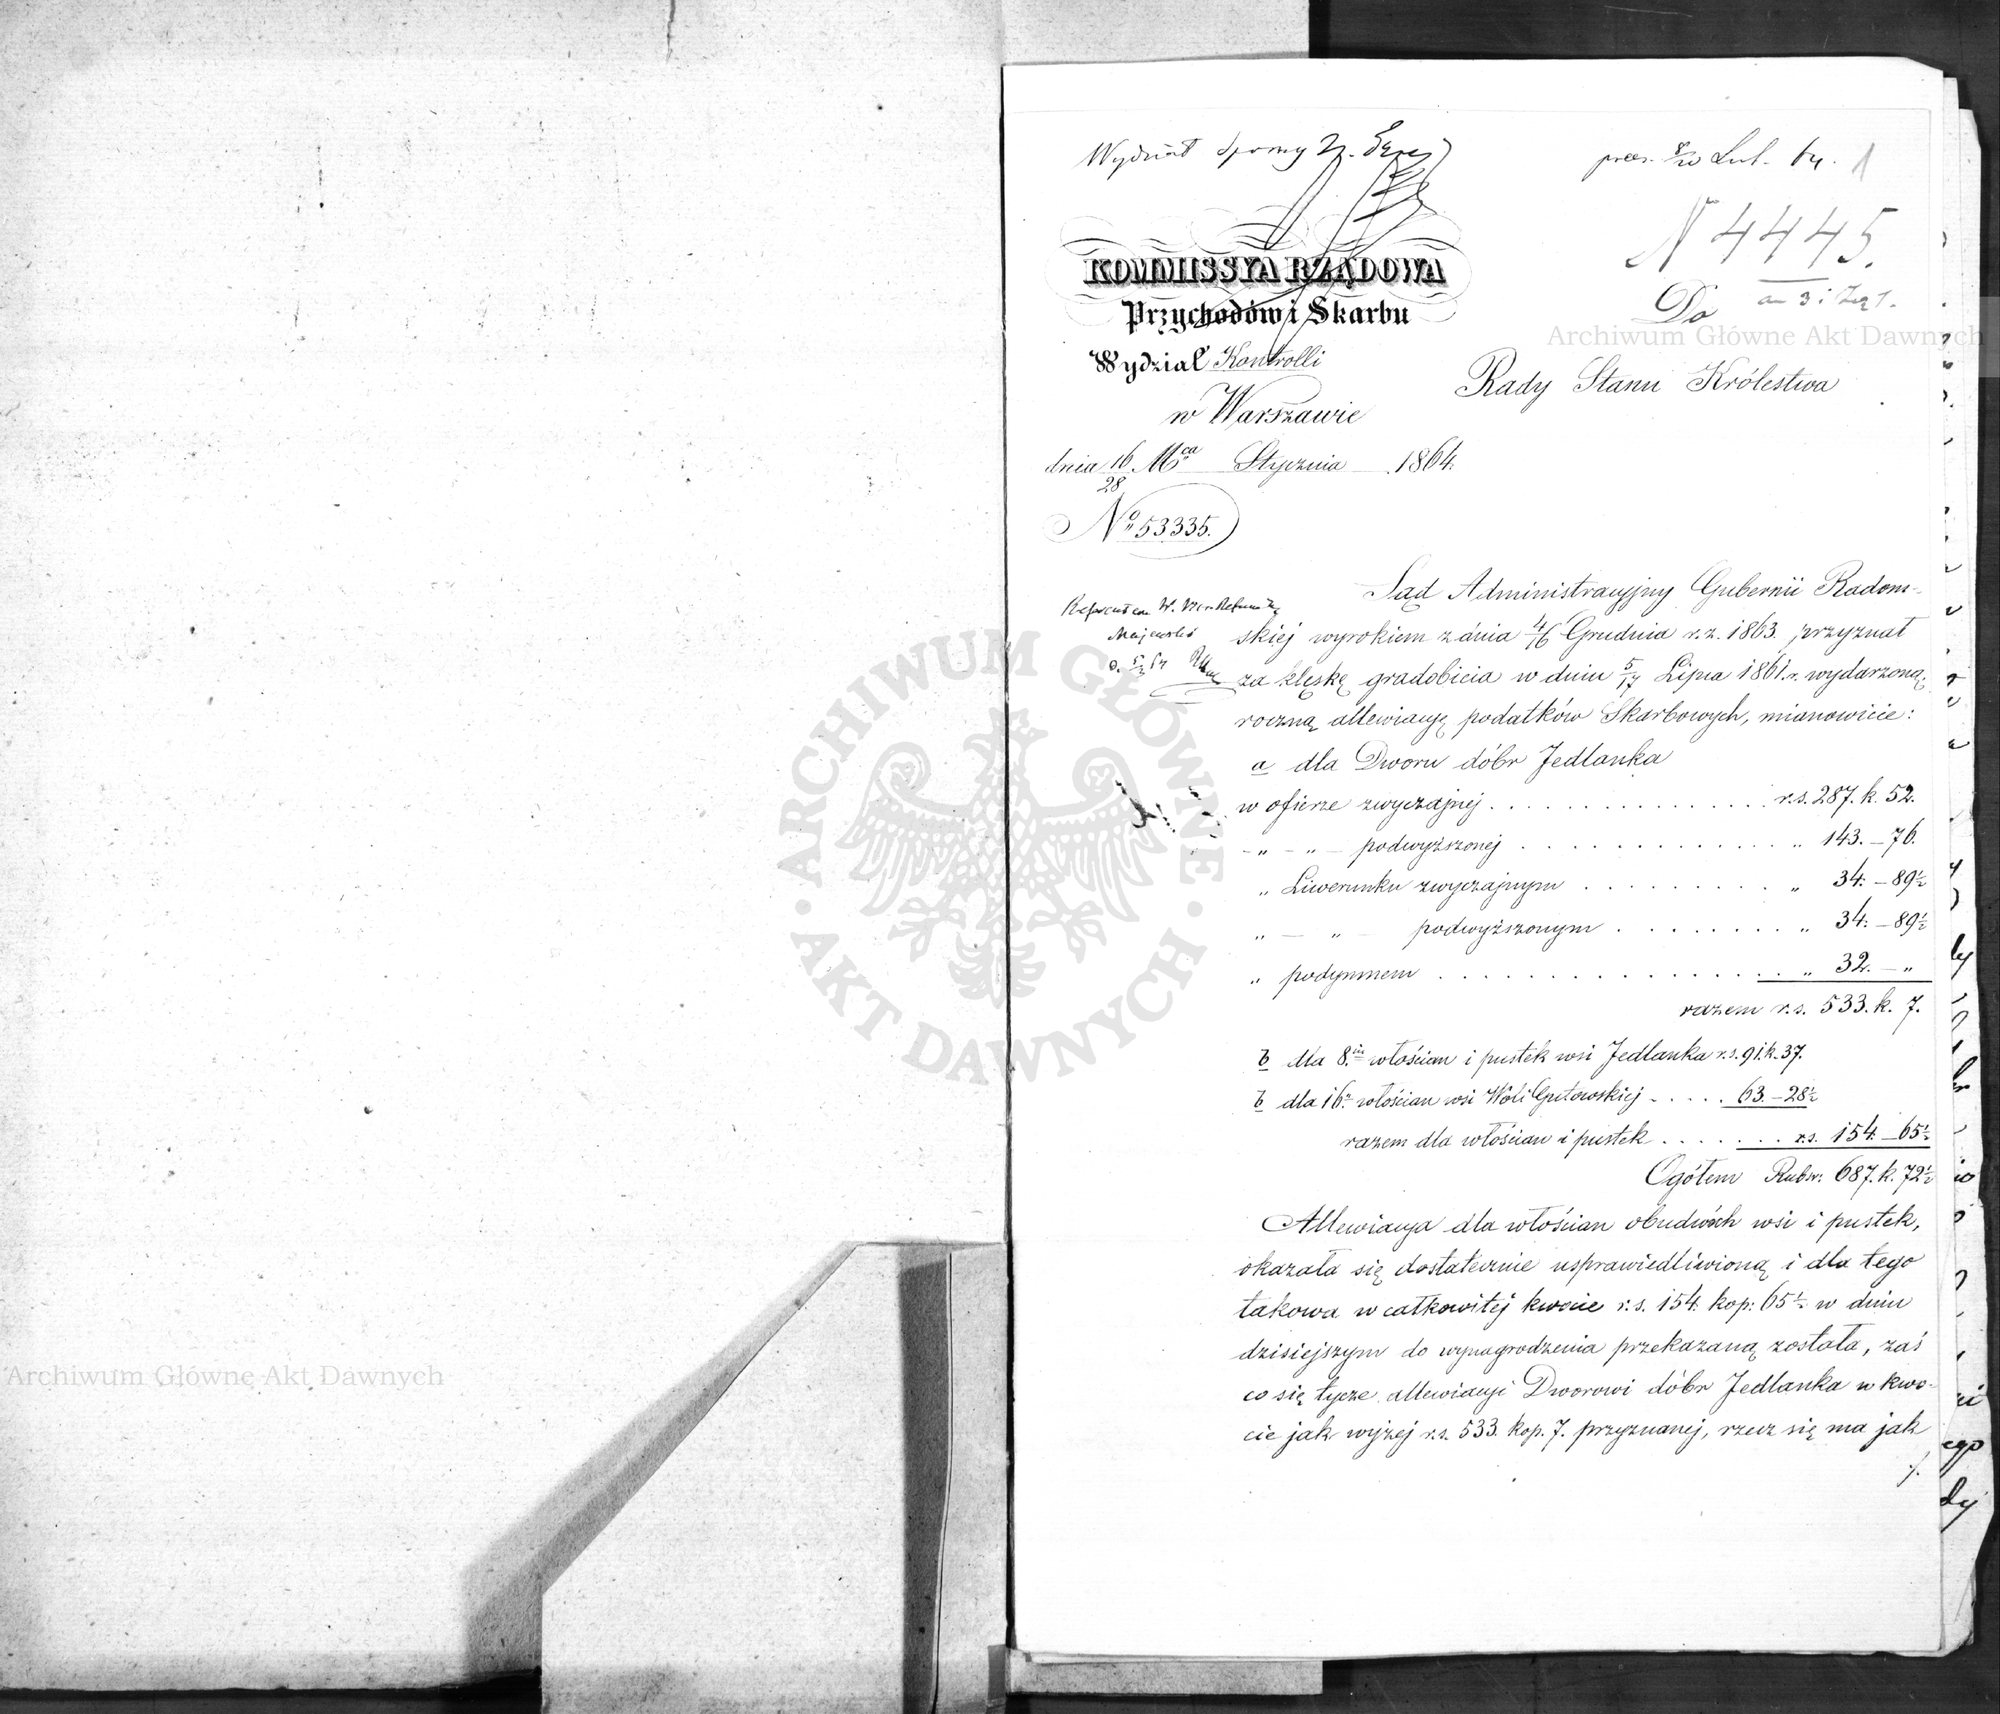 Wydział Sporny
prez. 8/20 Lut. 64. 1
N 4445.
KOMMISSYA RZĄDOWA
Przychodów i Skarbu
Wydział Kontrolli
w Warszawie
dnia 16/28 Mca Stycznia 1864.
No 53335.
Do
Rady Stanu Królestwa
Majewski
Sąd Administracyjny Gubernii Radom-
skiej wyrokiem z dnia 4/16 Grudnia r. z. 1863. przyznał
za klęskę gradobicia w dniu 5/17 Lipca 1861. r. wydarzoną,
roczną allewiacyę podatków Skarbowych, mianowicie:
a dla Dworu dóbr Jedlanka
w ofierze zwyczajnej . . . . . r.s. 287. k. 52.
– „ – „ – podwyższonej . . . . . „ 143. – 76.
„ Liwerunku zwyczajnym . . . . . „ 34. – 89½
„ – „ – podwyższonym . . . . . „ 34. – 89½
„ podymnem . . . . . „ 32. – „
razem r.s. 533. k. 7.
b dla 8.iu włościan i pustek wsi Jedlanka r.s. 91. k. 37.
b dla 16. włościan wsi Woli Gutowskiej . . . . 63. – 28½
razem dla włościan i pustek . . . . . r.s. 154. – 65½
Ogółem Rubsr: 687. k. 72½
Allewiacya dla włościan obudwóch wsi i pustek,
okazała się dostatecznie usprawiedliwioną i dla tego
takowa w całkowitej kwocie r.s. 154. kop: 65½ w dniu
dzisiejszym do wynagrodzenia przekazaną została, zaś
co się tycze allewiacyi Dworowi dóbr Jedlanka w kwo-
cie jak wyżej r.s. 533. kop. 7. przyznanej, rzecz się ma jak
./.
Archiwum Główne Akt Dawnych
Archiwum Główne Akt Dawnych
ARCHIWUM GŁÓWNE
AKT DAWNYCH